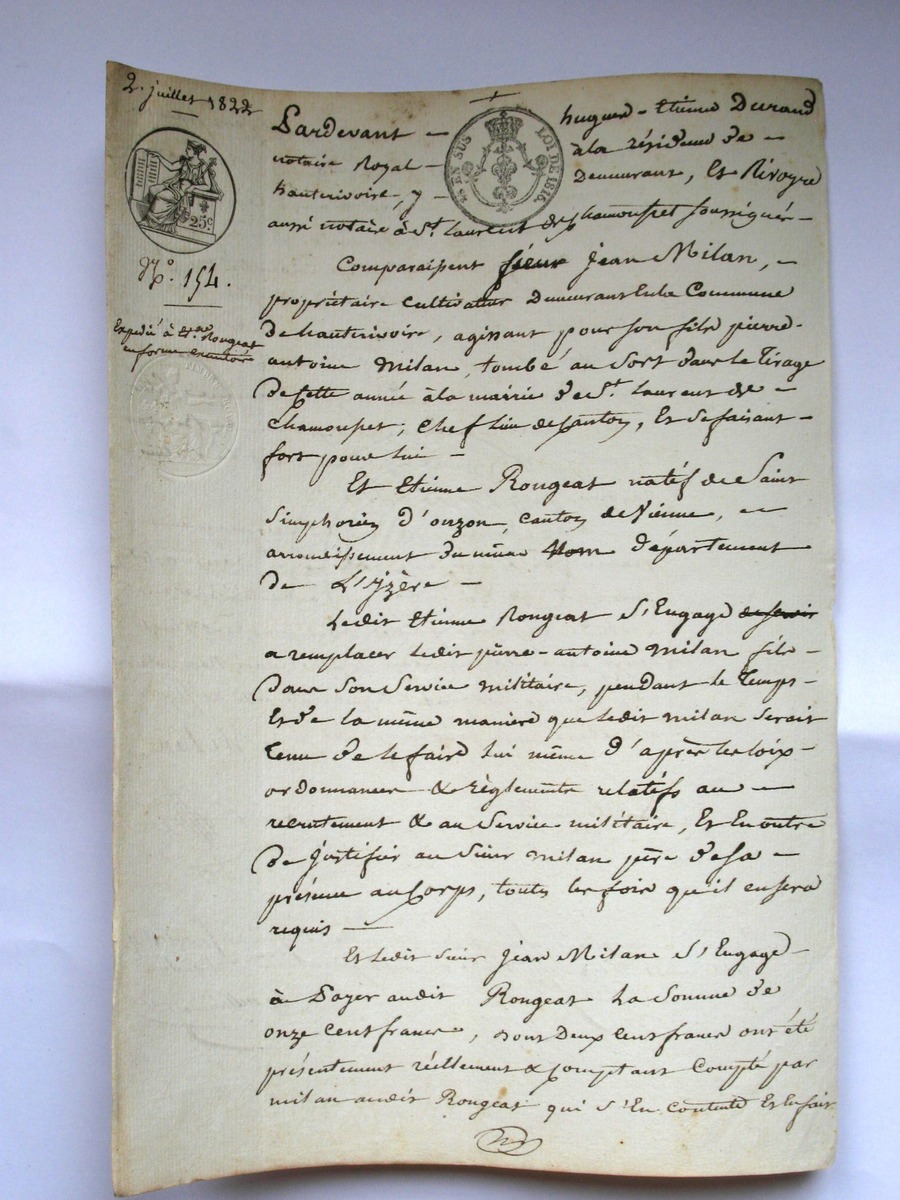 2. juillet 1822
Pardevant - hugues-Etienne Durand
notaire Royal - à la résidence de -
hauterivoire, y - Demeurant, Et Rivoyre
EN SUS LOI DE 1816.
aussi notaire à St. Laurent de Chamousset soussignés -
25c.
No. 154.
Expedié à Rongeat
en forme exécutoire
Comparaissent sieur Jean Milan, -
propriétaire cultivateur Demeurant En la Commune
De hauterivoire, agissant pour son fils pierre-
antoine milan, tombé au Sort dans le Tirage
De Cette année à la mairie de St. Laurent de -
Chamousset, chef lieu de Canton, Et se faisant -
fort pour lui -
Et Etienne Rongeat natif de Saint
Simphorien d'ouzon, canton de Vienne, -
arrondissement du même Nom département
De L'Yzère -
Ledit Etienne Rongeat s'Engage de servir
a remplacer ledit pierre-antoine milan fils -
Dans Son Service militaire, pendant le Temps -
Et de la même maniere que ledit milan serait
tenu de le faire lui même d'après les loix -
ordonnances & règlements relatifs au -
recrutement & au Service militaire, Et En outre
De justifier au Sieur milan père de sa -
présence au Corps, toutes les fois qu'il en sera
requis -
Et ledit sieur Jean Milan s'Engage -
à Payer audit Rongeat La Somme de
onze Cent francs, dont Deux Cent francs ont été
présentement réellement & Comptant Compté par
milan audit Rongeat qui s'En Contente Et En fait